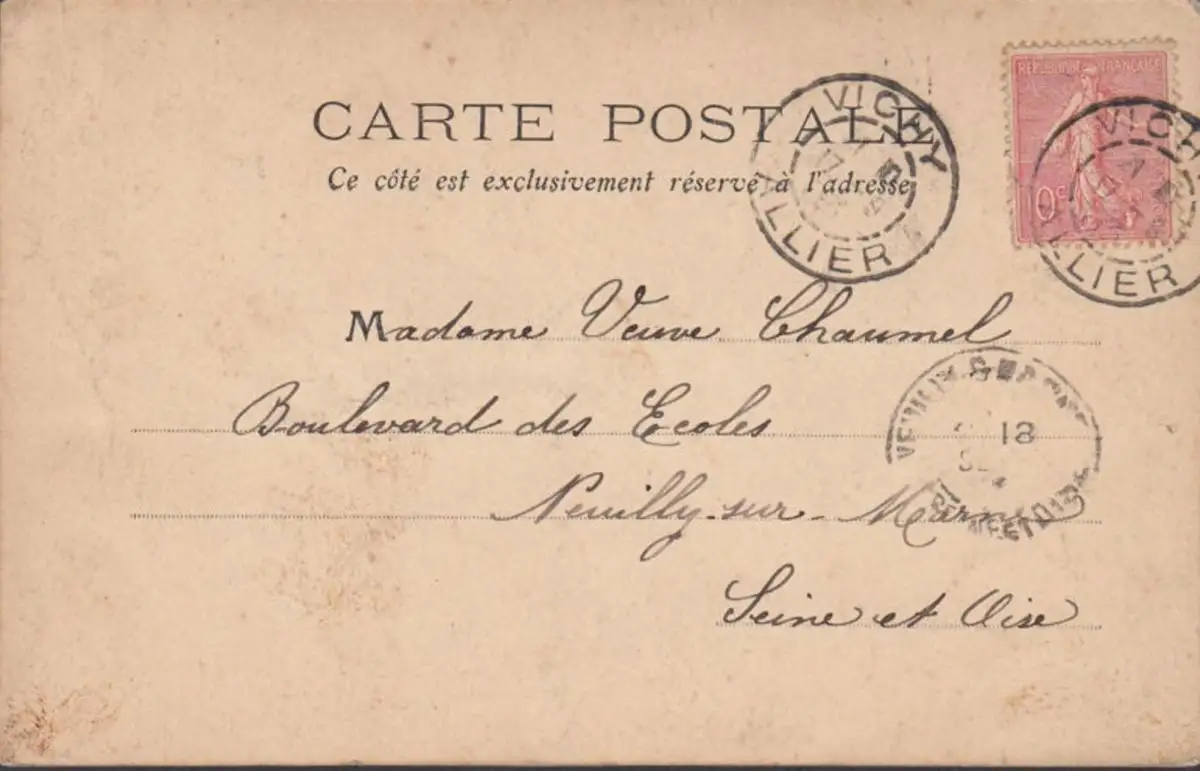 CARTE POSTALE
Ce côté est exclusivement réservé à l'adresse
VICHY
ALLIER
REPUBLIQUE FRANÇAISE
VICHY
ALLIER
Madame Veuve Chaumel
Boulevard des Ecoles
Neuilly-sur-Marne
Seine et Oise
18